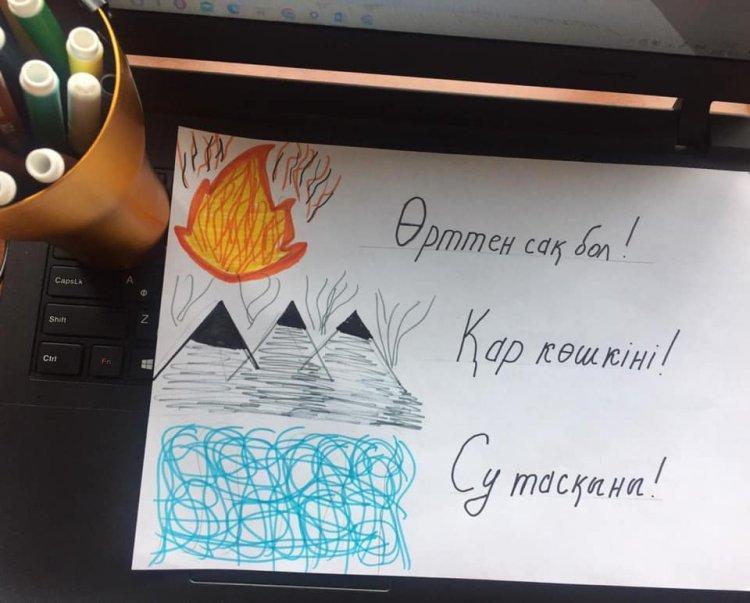 CapsLk
A
Ф
Shift
Z
Ctrl
Fn
Өрттен сақ бол!
Қар көшкіні!
Су тасқыны!